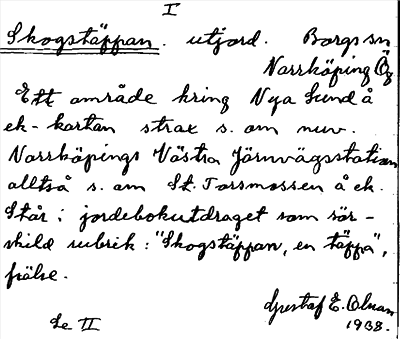 I
Skogstäppan. utjord. Borgs sn
Norrköping Ög
Ett område kring Nya Lund å
ek-kartan strax s. om nuv.
Norrköpings Västra Järnvägsstation
alltså s. om St. Torsmossen å ek.
Står i jordebokutdraget som sär-
skild rubrik: "Skogstäppan, en täppa",
frälse.
Gustaf E. Olman
1938.
Se II